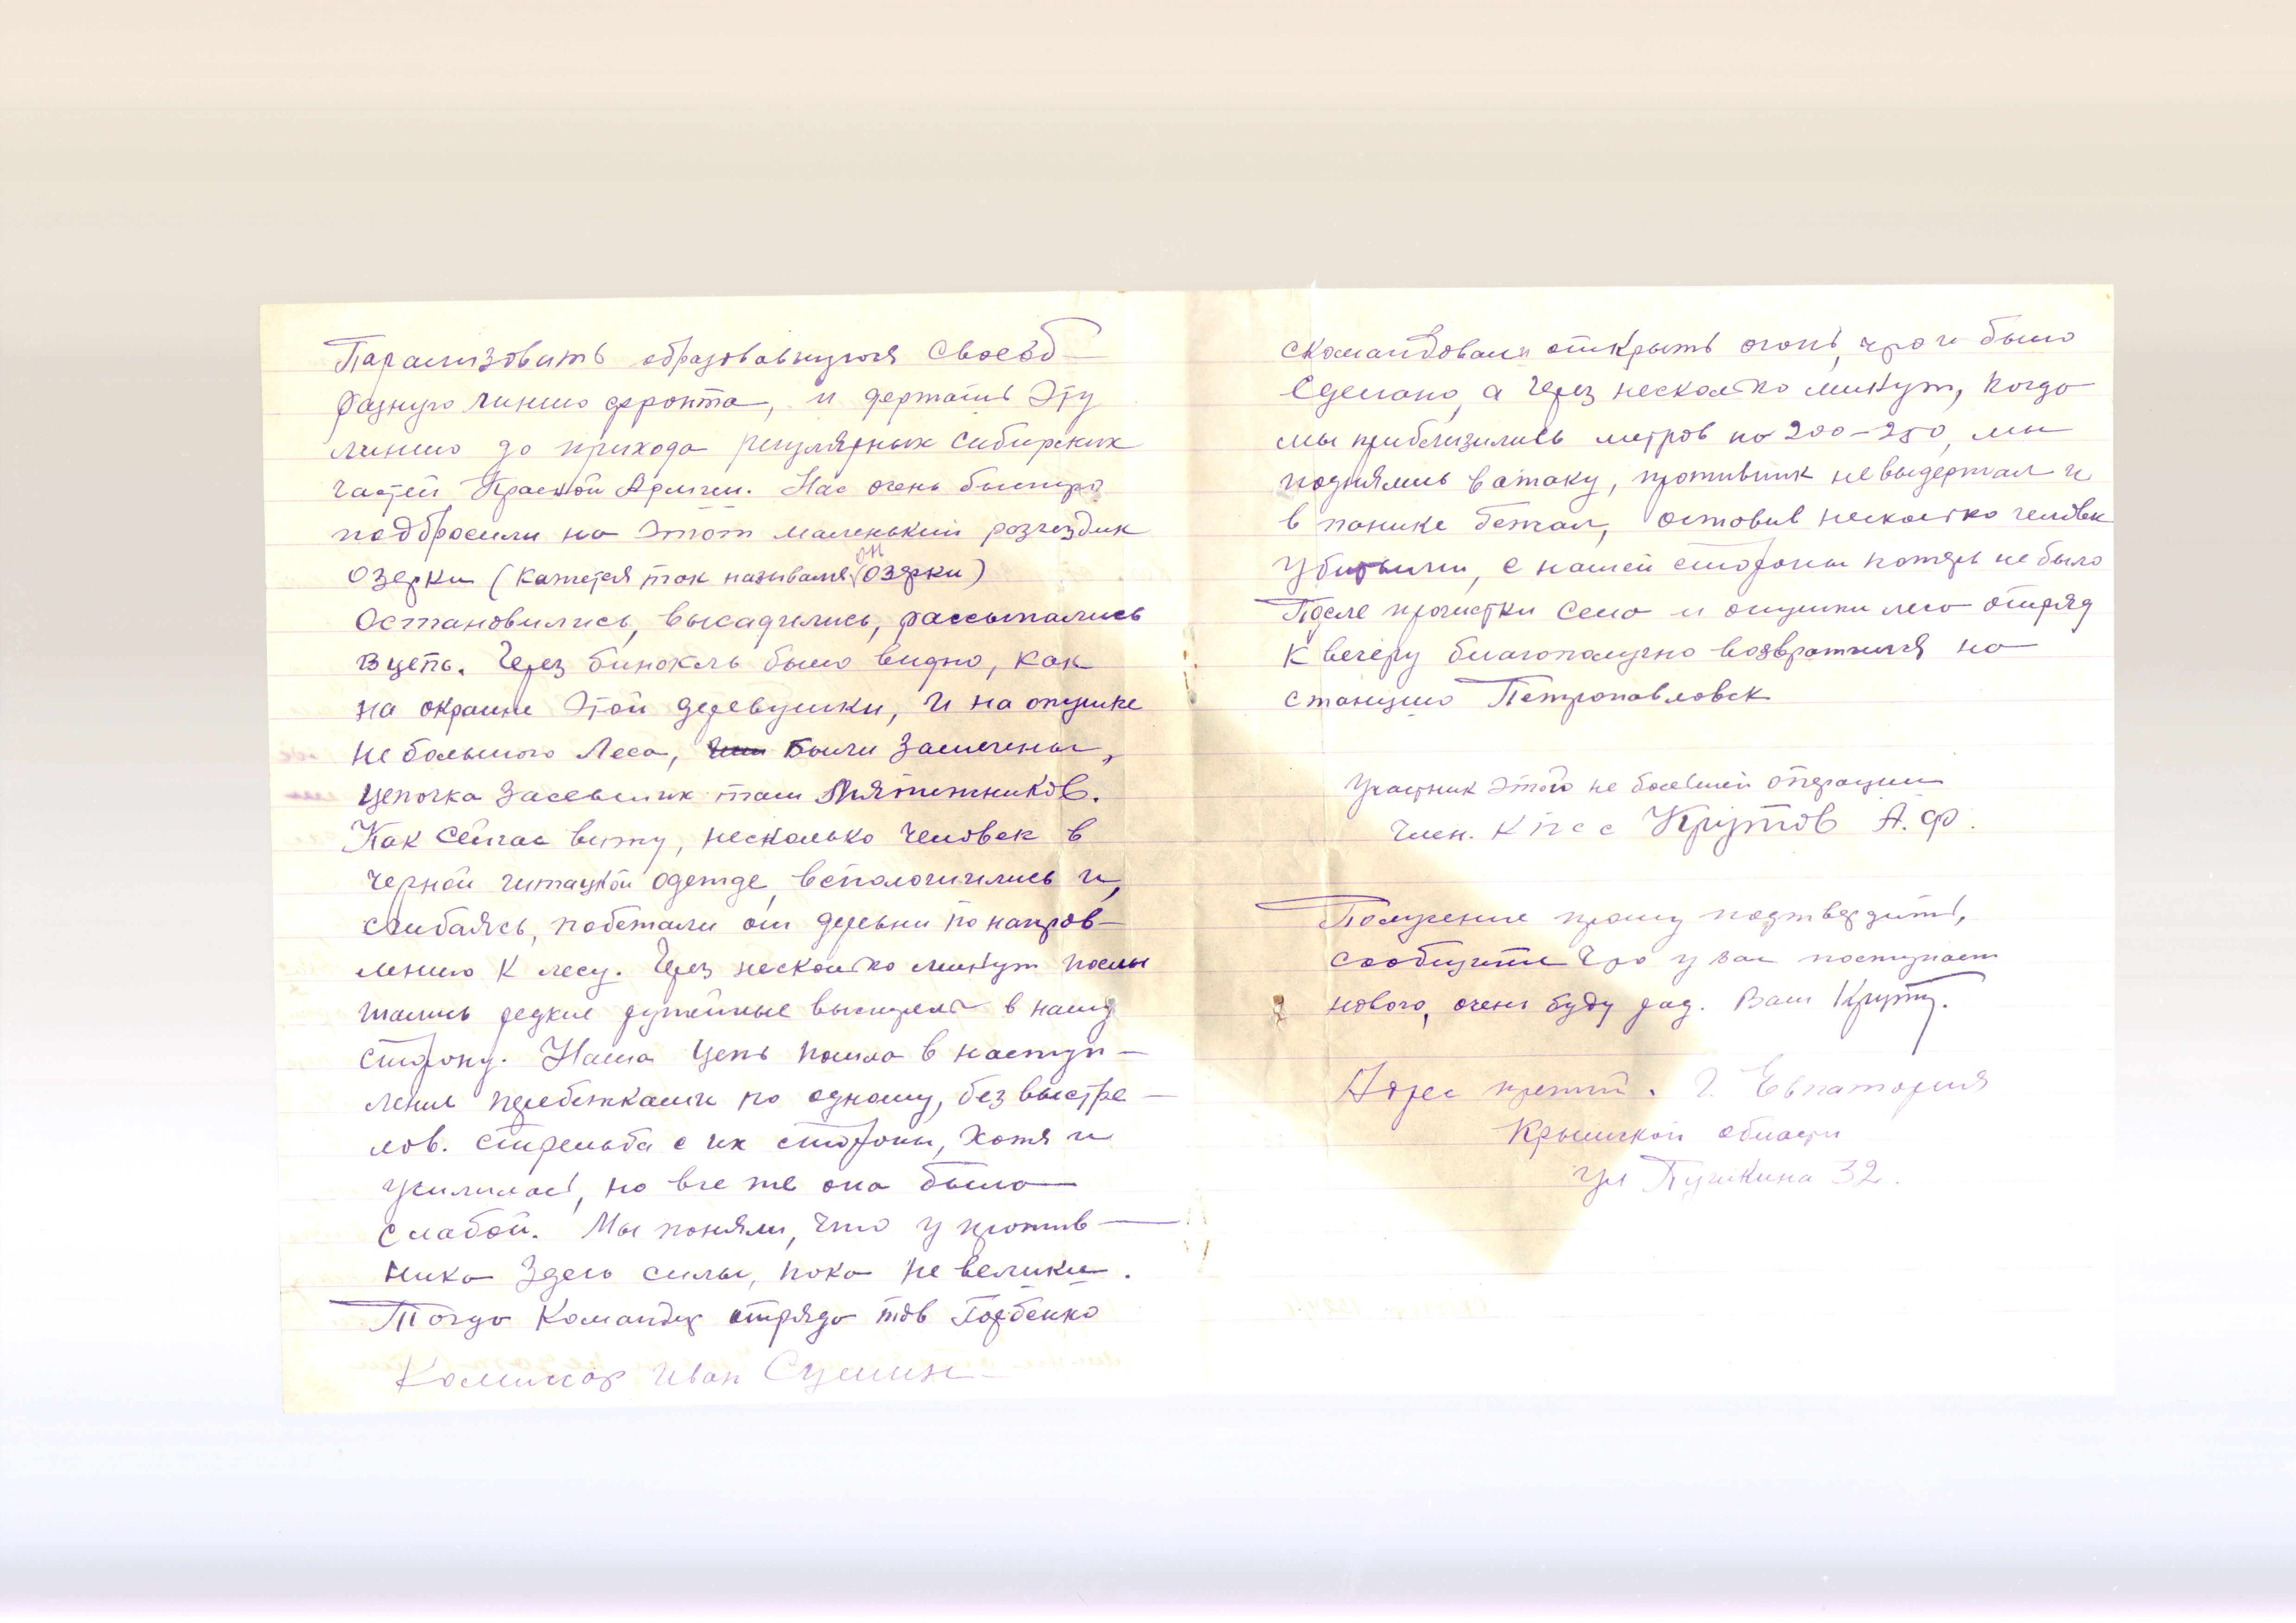 Парализовать образовавшуюся своеоб-
разную линию фронта, и держать эту
линию до прихода регулярных сибирских
частей Красной Армии. Нас очень быстро
подбросили на этот маленький разъездик
озерки (кажется так назывался он озярки)
Остановились, высадились, рассыпались
в цепь. Через бинокль было видно, как
на окраине этой деревушки, и на опушке
не большого леса, были замечены,
цепочка засевших там мятежников.
Как сейчас вижу, несколько человек в
черной одежде, всполошились и,
сгибаясь, побежали от деревни по направ-
лению к лесу. Через несколько минут послы
шались редкие ружейные выстрелы в нашу
сторону. Наша цепь пошла в наступ-
ление перебежками по одному, без выстре-
лов. Стрельба с их стороны, хотя и
усилилась, но все же она была
слабой. Мы поняли, что у против-
ника здесь силы, пока не велики.
Тогда командир отряда тов Горбенко
Комиссар Иван Сушин
скомандовали открыть огонь, что и было
сделано, а через несколько минут, когда
мы приблизились метров на 200-250, мы
поднялись в атаку, противник не выдержал и
в панике бежал, оставив несколько человек
убитыми, с нашей стороны потерь не было
После прочистки села и опушки леса отряд
к вечеру благополучно возвратился на
станцию Петропавловск
Участник этой не большой операции
Член. КПСС Крутов А. Ф.
Получение прошу подтвердить,
сообщите что у вас поступает
нового, очень буду рад. Ваш Крутов.
Адрес прежний. Г. Евпатория
Крымской области
ул Пушкина 32.